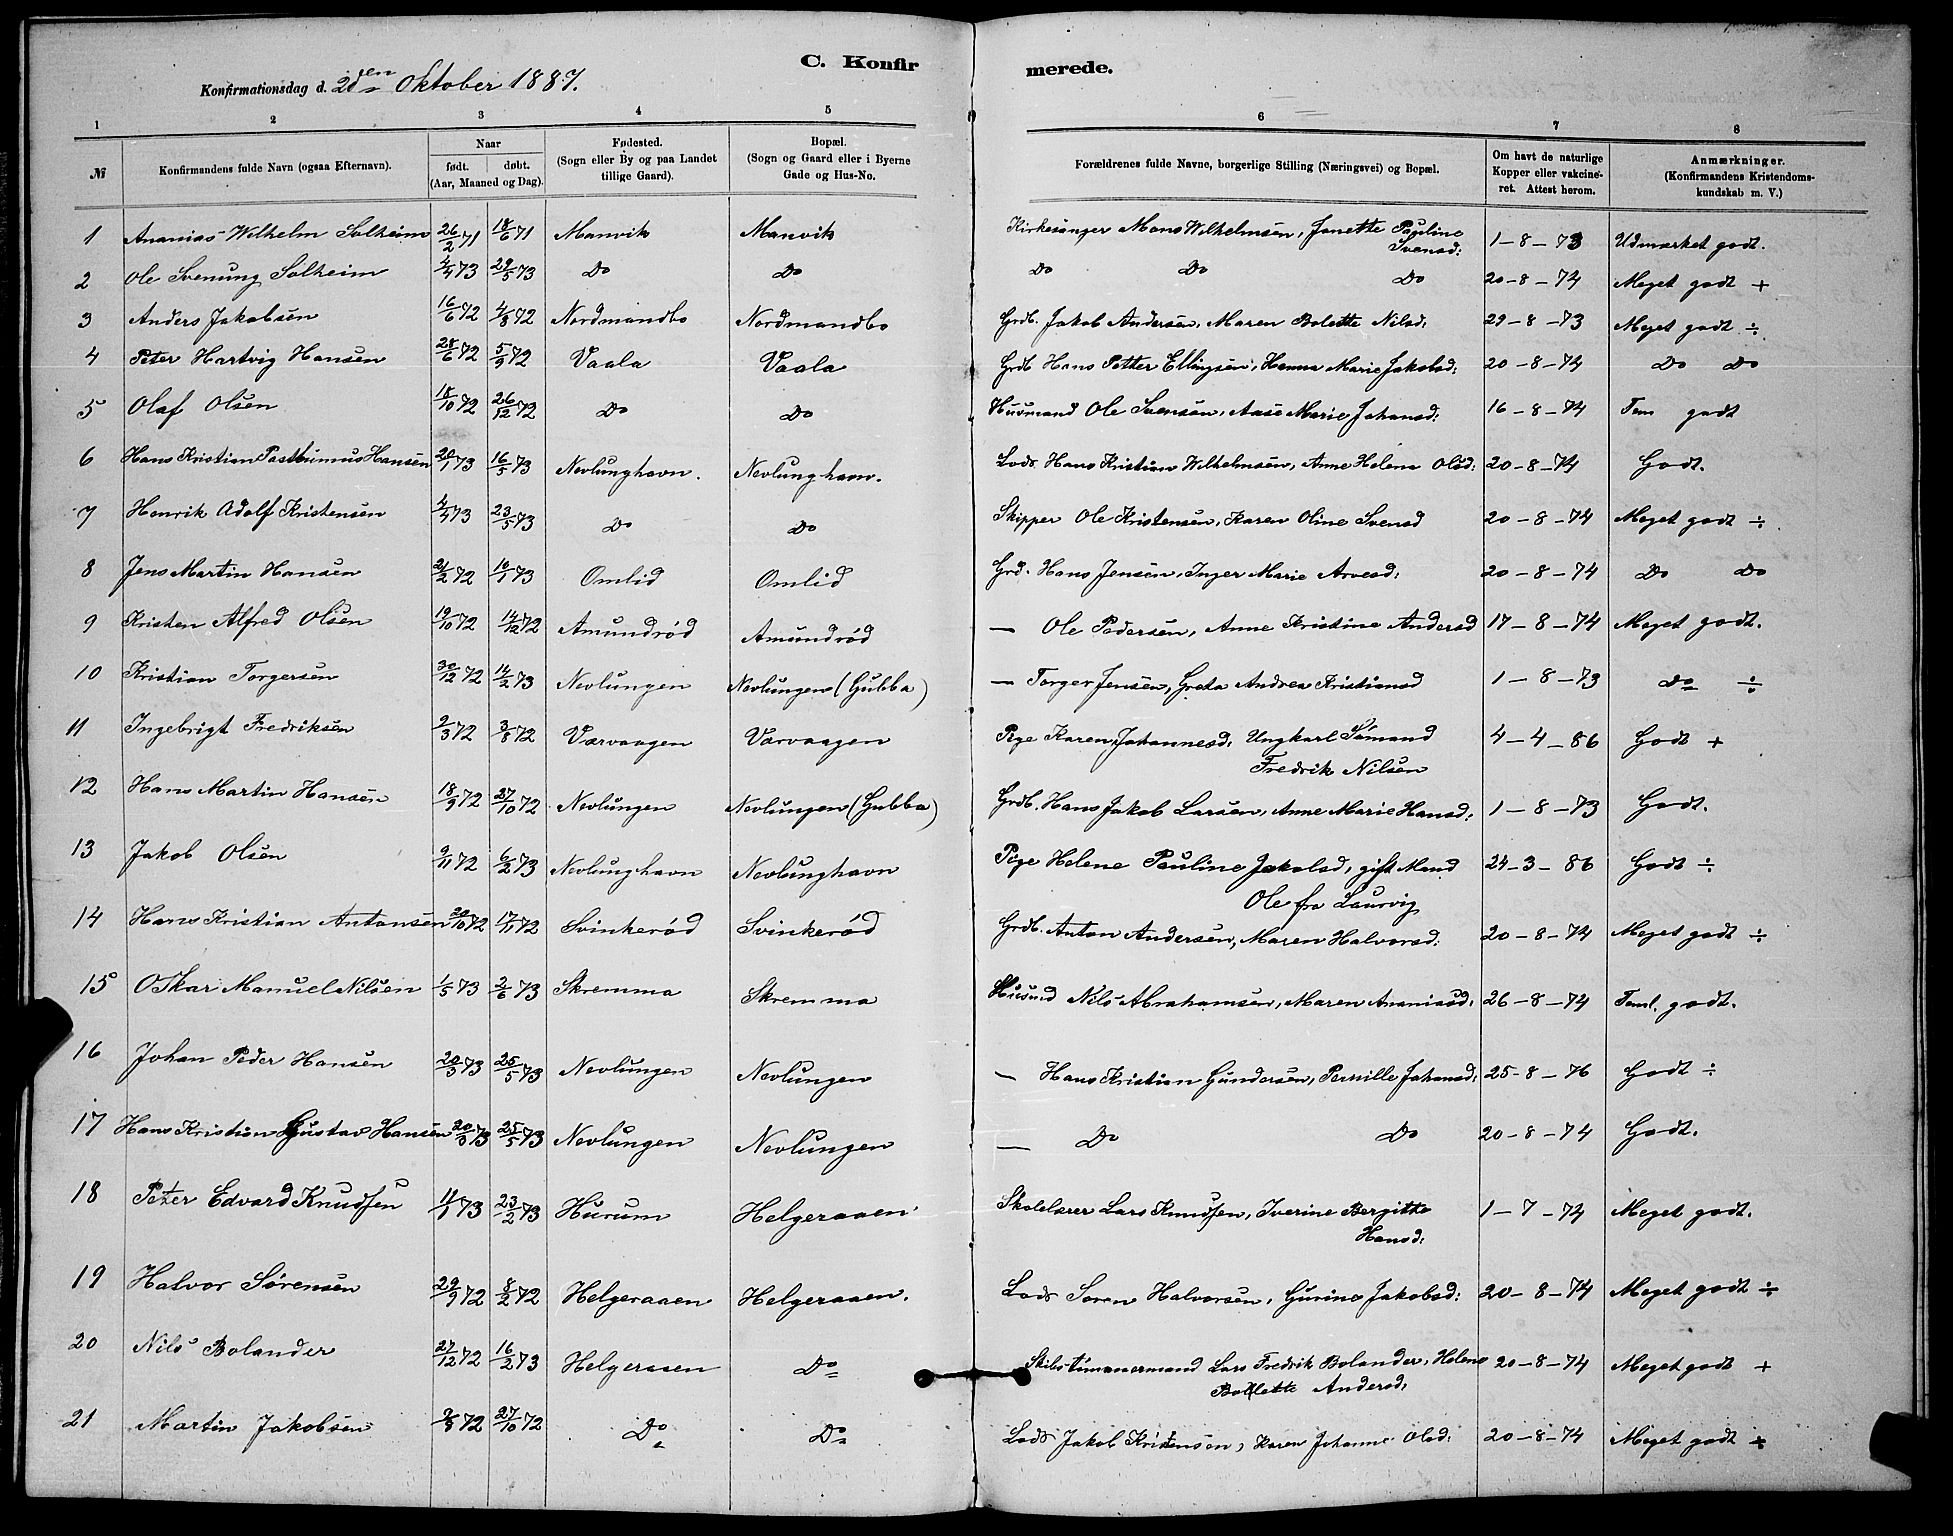 C. Konfirmerede.
Konfirmationsdag d. 2den Oktober 1887.
1 2 3 4 5 6 7 8
№ Konfirmandens fulde Navn (ogsaa Efternavn). Naar født. døbt. (Aar, Maaned og Dag). Fødested. (Sogn eller By og paa Landet tillige Gaard). Bopæl. (Sogn og Gaard eller i Byerne Gade og Hus-No. Forældrenes fulde Navne, borgerlige Stilling (Næringsvei) og Bopæl. Om havt de naturlige Kopper eller vakcineret. Attest herom. Anmærkninger. (Konfirmandens Kristendomskundskab m. V.)
1 Ananias Wilhelm Solheim 26/2 71 18/6 71 Manvik Manvik Kirkesanger Mons Wilhelmsen, Janette Pauline Svensd: 1-8-73 Udmærket godt.
2 Ole Svenung Solheim 4/4 73 29/5 73 Do Do Do Do Do 20-8-74 Meget godt +
3 Anders Jakobsen 16/6 72 4/8 72 Nordmandbo Nordmandbo Grdb. Jakob Andersen, Maren Bolette Nilsd: 29-8-73 Meget godt ÷
4 Peter Hartvig Hansen 28/6 72 5/9 72 Vaala Vaala Grdb Hans Petter Ellingsen, Hanna Marie Jakobsd: 20-8-74 Do Do
5 Olaf Olsen 18/10 72 26/12 72 Do Do Husmand Ole Svensen, Aase Marie Johansd: 16-8-74 Tem godt
6 Hans Kristian Posthumus Hansen 20/1 73 16/5 73 Nevlunghavn. Nevlunghavn. Lods Hans Kristian Wilhelmsen, Anne Helene Olsd: 20-8-74 Godt.
7 Henrik Adolf Kristensen 4/4 73 23/5 73 Do Do Skipper Ole Kristensen, Karen Oline Svensd 20-8-74 Meget godt ÷
8 Jens Martin Hansen 21/2 72 10/1 73 Omlid Omlid Grd. Hans Jensen, Inger Marie Arvesd: 20-8-74 Do Do
9 Kristen Alfred Olsen 19/10 72 14/12 72 Amundrød Amundrød — Ole Pedersen, Anne Kristine Andersd 17-8-74 Meget godt.
10 Kristian Torgersen 30/12 72 14/2 73 Nevlungen Nevlungen (Gubba) — Torger Jensen, Greta Andrea Kristiansd 1-8-73 do ÷
11 Ingebrigt Fredriksen 2/3 72 3/8 72 Værvaagen Værvaagen Pige Karen Johannesd: Ungkarl Sømand Fredrik Nilsen 4-4-86 Godt +
12 Hans Martin Hansen 18/9 72 27/10 72 Nevlungen Nevlungen (Gubba) Grdb. Hans Jakob Larsen, Anne Marie Hansd: 1-8-73 Godt.
13 Jakob Olsen 9/11 72 6/2 73 Nevlunghavn Nevlunghavn Pige Helene Pauline Jakobsd, gift Mand Ole fra Laurvig 24-3-86 Godt ÷
14 Hans Kristian Antonsen 20/10 72 17/11 72 Svinkerød Svinkerød Grdb. Anton Andersen, Maren Halvorsd: 20-8-74 Meget godt ÷
15 Oskar Manuel Nilsen 1/5 73 2/6 73 Skremma Skremma Husmd Nils Abrahamsen, Maren Ananiasd: 26-8-74 Teml. godt.
16 Johan Peder Hansen 20/3 73 25/5 73 Nevlungen Nevlungen — Hans Kristian Gundersen, Pernille Johansd: 25-8-76 Godt ÷
17 Hans Kristian Gustav Hansen 20/3 73 25/5 73 Nevlungen Nevlungen — Do Do 20-8-74 Godt.
18 Peter Edvard Knudsen 11/1 73 23/2 73 Hurum Helgeraaen Skolelærer Lars Knudsen, Iverine Bergitte Hansd: 1-7-74 Meget godt.
19 Halvor Sørensen 29/9 72 8/2 72 Helgeraaen Helgeraaen. Lods Søren Halvorsen, Gurine Jakobsd: 20-8-74 Meget godt ÷
20 Nils Bolander 27/12 72 16/2 73 Helgeraaen Do Skibstømmermand Lars Fredrik Bolander, Helene Bollette Andersd: 20-8-74 Meget godt +
21 Martin Jakobsen 72 27/10 72 Do Do Lods Jakob Kristensen, Karen Johanne Olsd: 20-8-74 Meget godt ÷